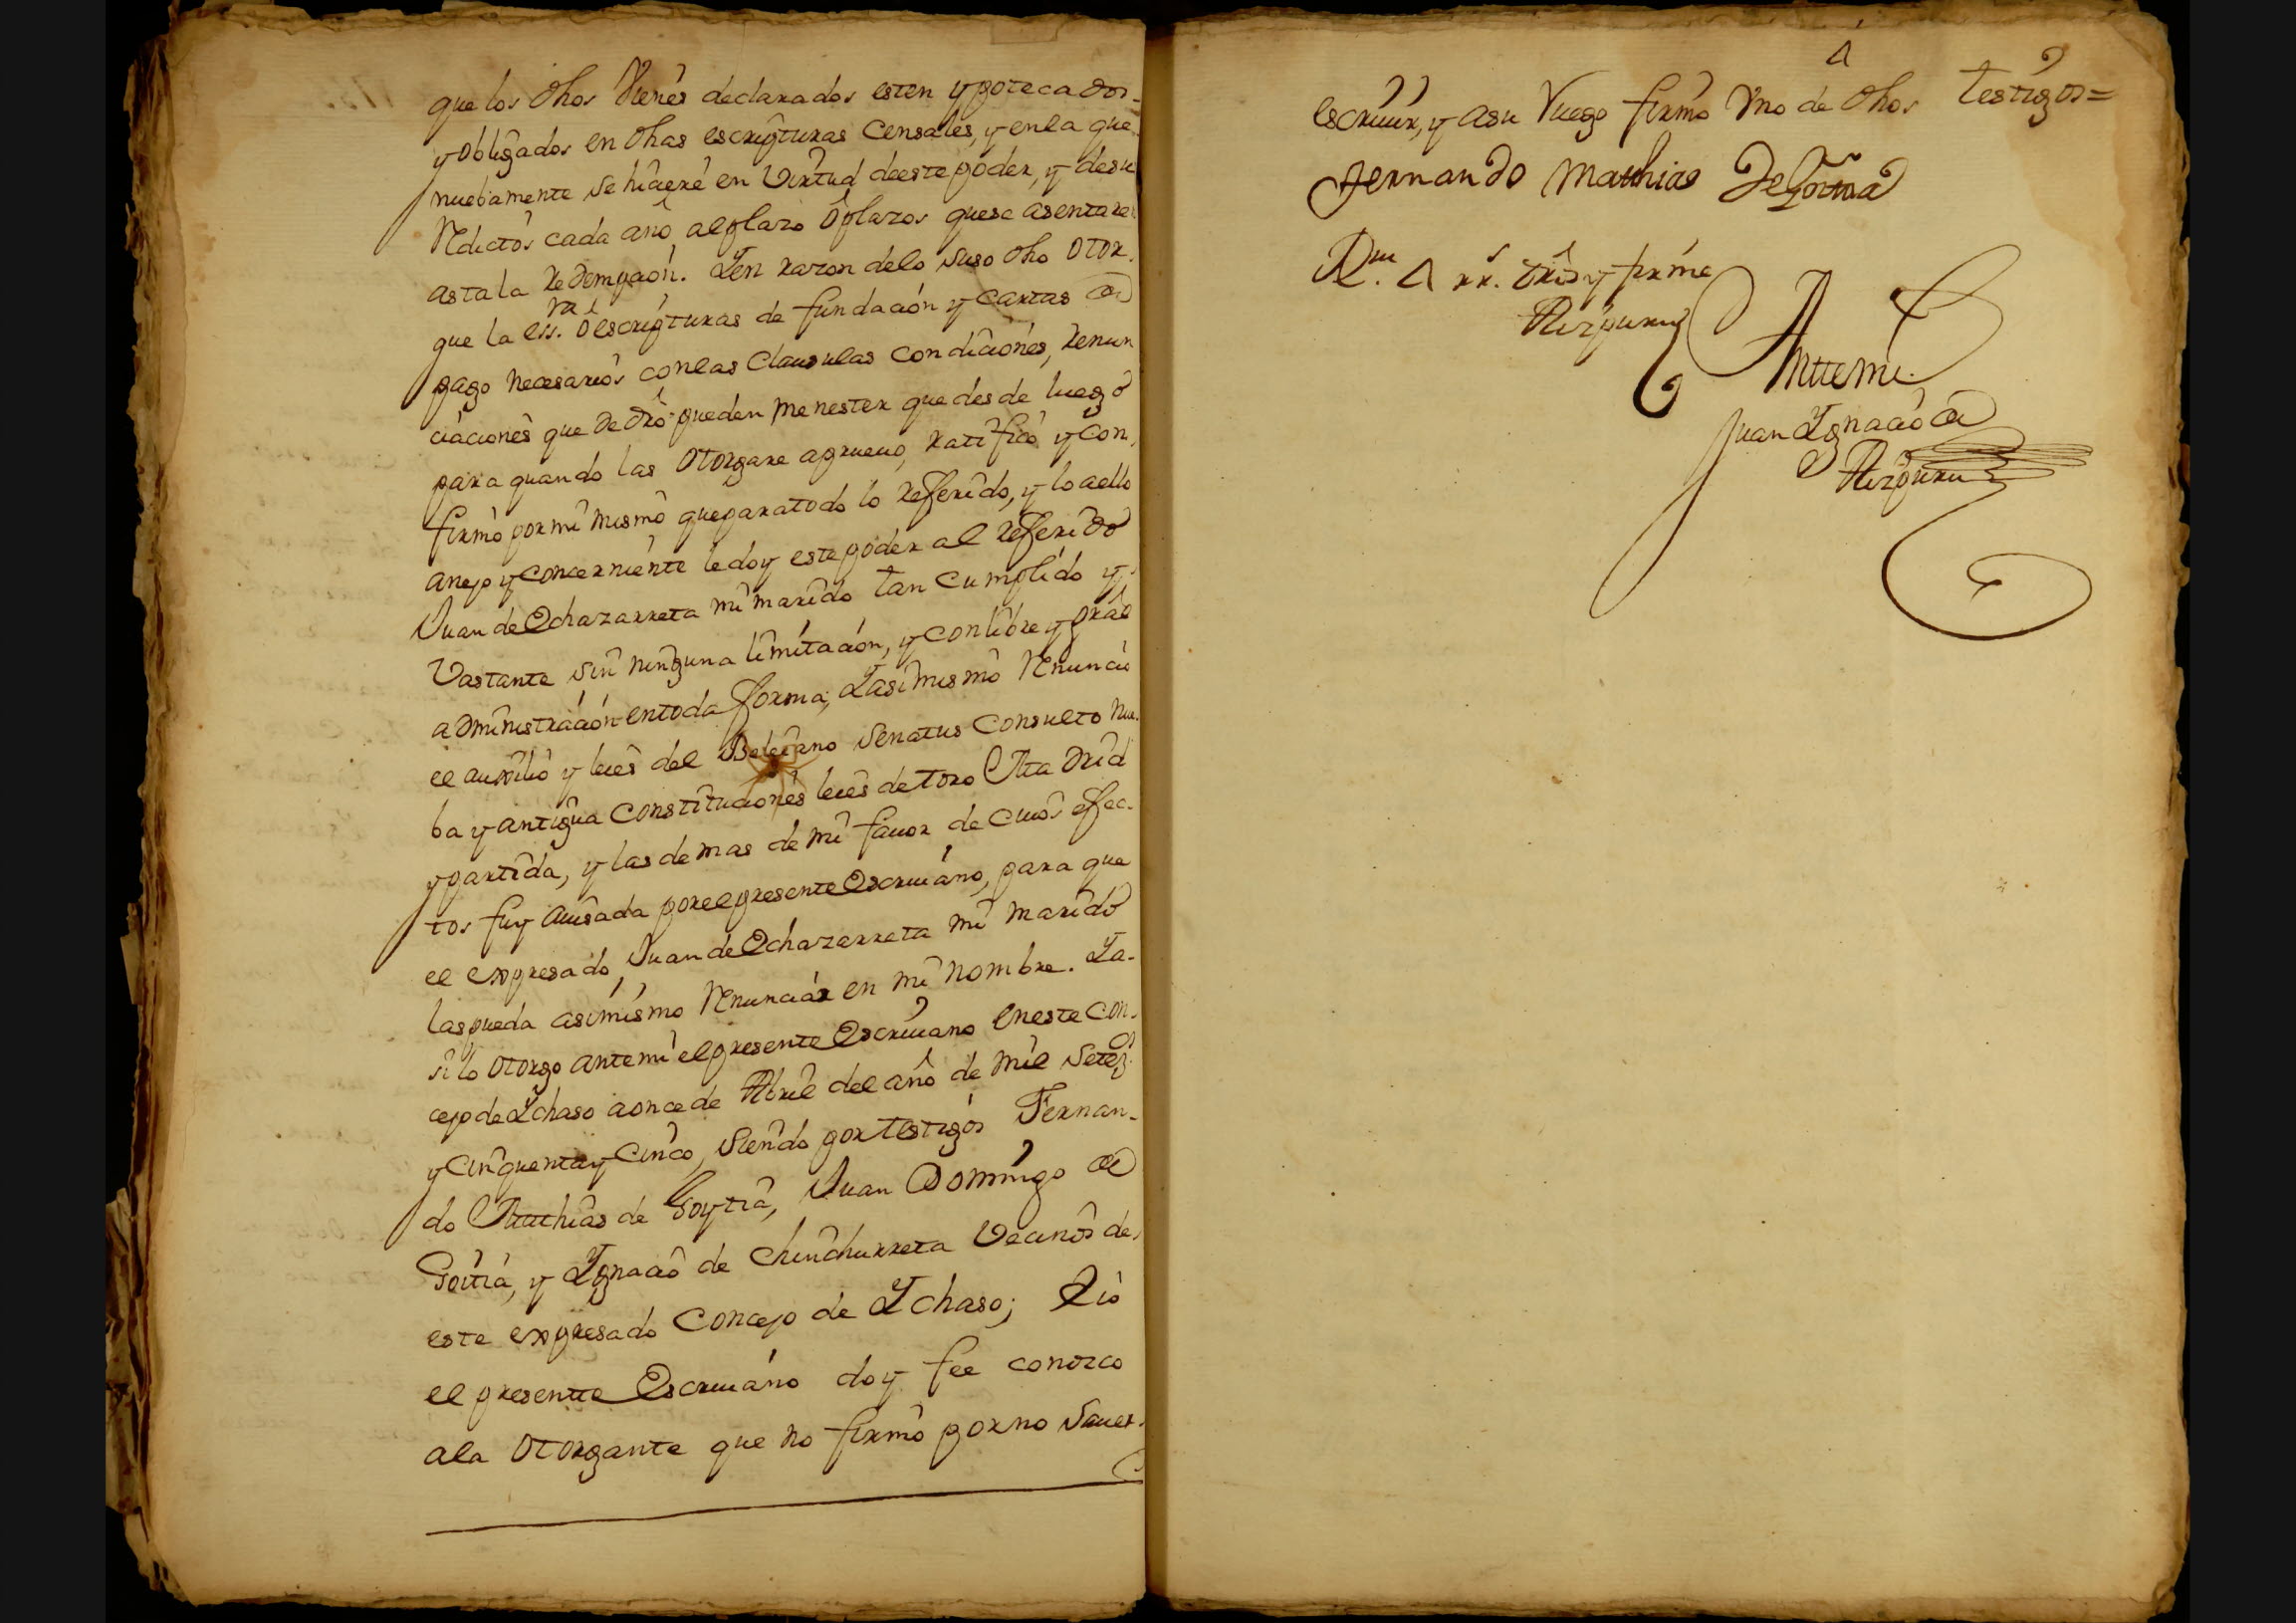 que los dhos Vienes declarados esten ypotecados
y obligados en dhas escripturas Censales, y en la que
nuebamente se hiciere en Virtud deeste poder, y de sus
Redictos cada año al plazo ô plazos que se asentare
asta la Redempcion. Y en razon delo suso dho otor
que la ess.ra ô escripturas de fundación y cartas de
pago necesarios con las Clausulas Condiciones, Renun
ciaciones que de dro pueden menester que des de luego
para quando las otorgare apruevo, ratifico y con
firmo por mi mismo que para todo lo refferido, y lo a ello
anejo y concerniente le doy este poder al refferido
Juan de Ochazarreta mi marido tan cumplido y
Vastante sin ninguna limitación, y con libre y gral
administración en toda fforma; Y asimismo Renuncio
el auxilio y leies del Beleiano Senatus Consulto nue
ba y antigua Constituciones leies de toro Madrid
y partida, y las demas de mi favor de cuios effec
tos fuy auisada por el presente Escriuano, para que
el expresado Juan de Ochazarreta mi marido
las pueda asimismo Renunciar en mi nombre. Y a
si lo otorgo ante mi el presente Escriuano en este con
cejo de Ychaso a once de Abril del año de mil setez.os
y cinquenta y cinco, siendo por testigos Fernan
do Matthias de Goytia, Juan Domingo de
Goitia, y Ygnacio de Chinchurreta Vecinos de
este expresado Concejo de Ychaso; E io
el presente Escriuano doy fee conozco
a la otorgante que no firmó por no saver
escriuir, y a su Ruego firmó Vno de dhos testigos=
Fernando Matthias de Goitia
Aizpuru
Ante mi
Juan Ygnacio de
Aizpuru